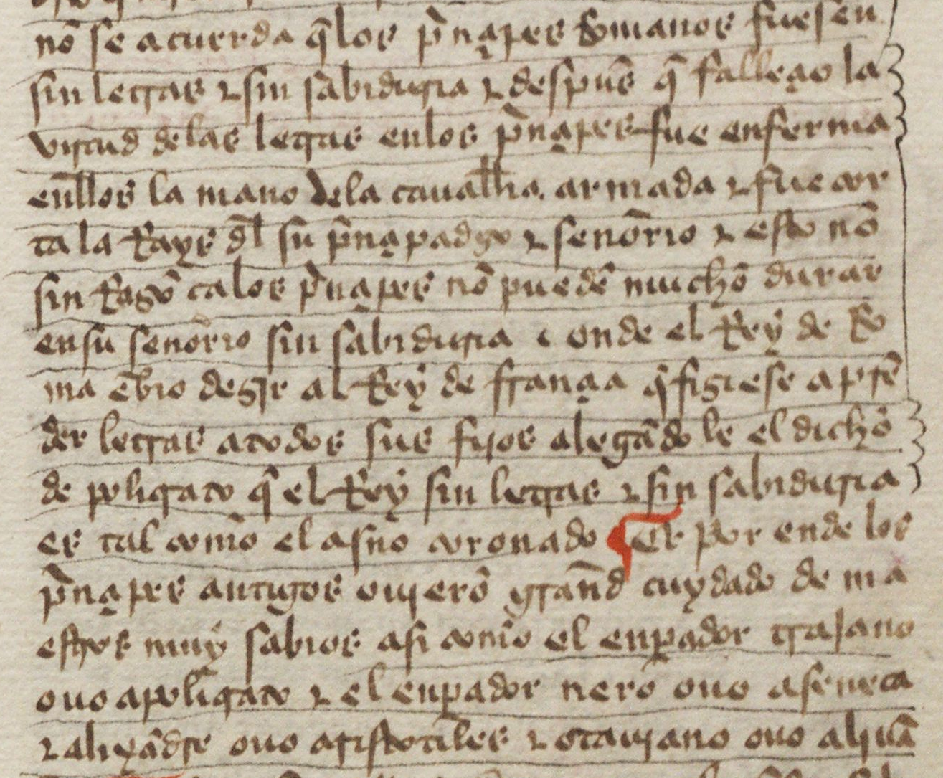 nõ se acuerda q̃ los p̃nçipes Romanos fuesen
sin letras ⁊ sin sabiduria ⁊ despues q̃ falleçio la
virtud delas letras enlos p̃nçipes fue enferma
enllos la mano dela cauall̃ia armada ⁊ fue cor
tala Rays dl̃ su p̃nçipadgo ⁊ señorio ⁊ esto nõ
sin Razõ calos p̃nçipes nõ puedẽ mucho durar
ensu señorio sin sabiduria onde el Rey de Ro
ma ẽbio dezir al Rey de françia q̃ fiziese aprẽ
der letras atodos sus fijos alegãdo le el dicho
de poliçrato q̃ el Rey sin letras ⁊ sin sabiduria
es tal com̃o el asno coronado Et por ende los
p̃nçipes antigos ouierõ grãnd cuydado de ma
estros muy sabios asi com̃o el enp̃ador trajano
ouo apoliçrato ⁊ el enpador nero ouo aseneca
⁊ alixãdre ouo aristotiles ⁊ otauiano ouo